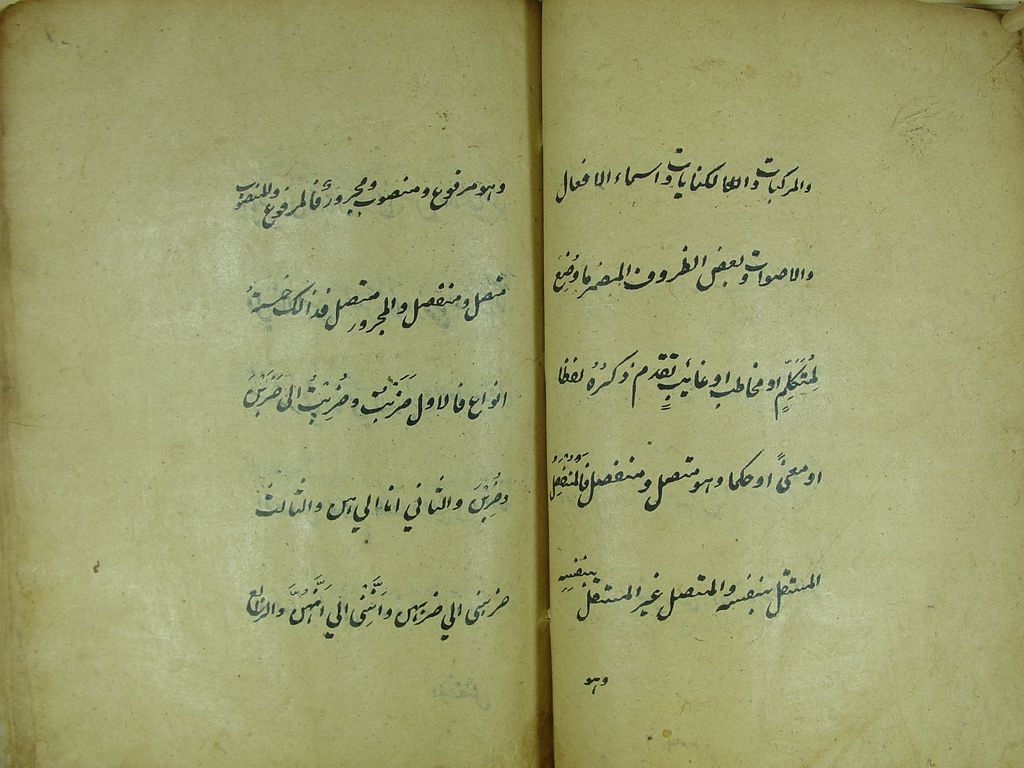 والمركبات والكنايات واسماء الافعال
والاصوات وبعض الظروف المضمر ما وُضِعَ
لمُتَكَلِّمٍ او مخاطب او غايبٍ تقدم ذكرُهُ لفظا
او معنىً او حكما وهو متصل ومنفصل فَالمُنْفَصِلُ
المستقل بنفسه والمتصل غير المستقل بنفسِه
وهو
وهو مرفوع ومنصوب ومجرور فالمرفوع والمنصوب
متصل ومنفصل والمجرور متصل فذالك خمسةُ
انواع فالاول ضَرَبْتُ وضُرِبْتُ الى ضَرَبْنَ
وضُرِبْنَ والثاني انا الي هن والثالث
ضربنى الي ضربهن وَاَنَّنِى الي اَنَّهُنَّ والرابع